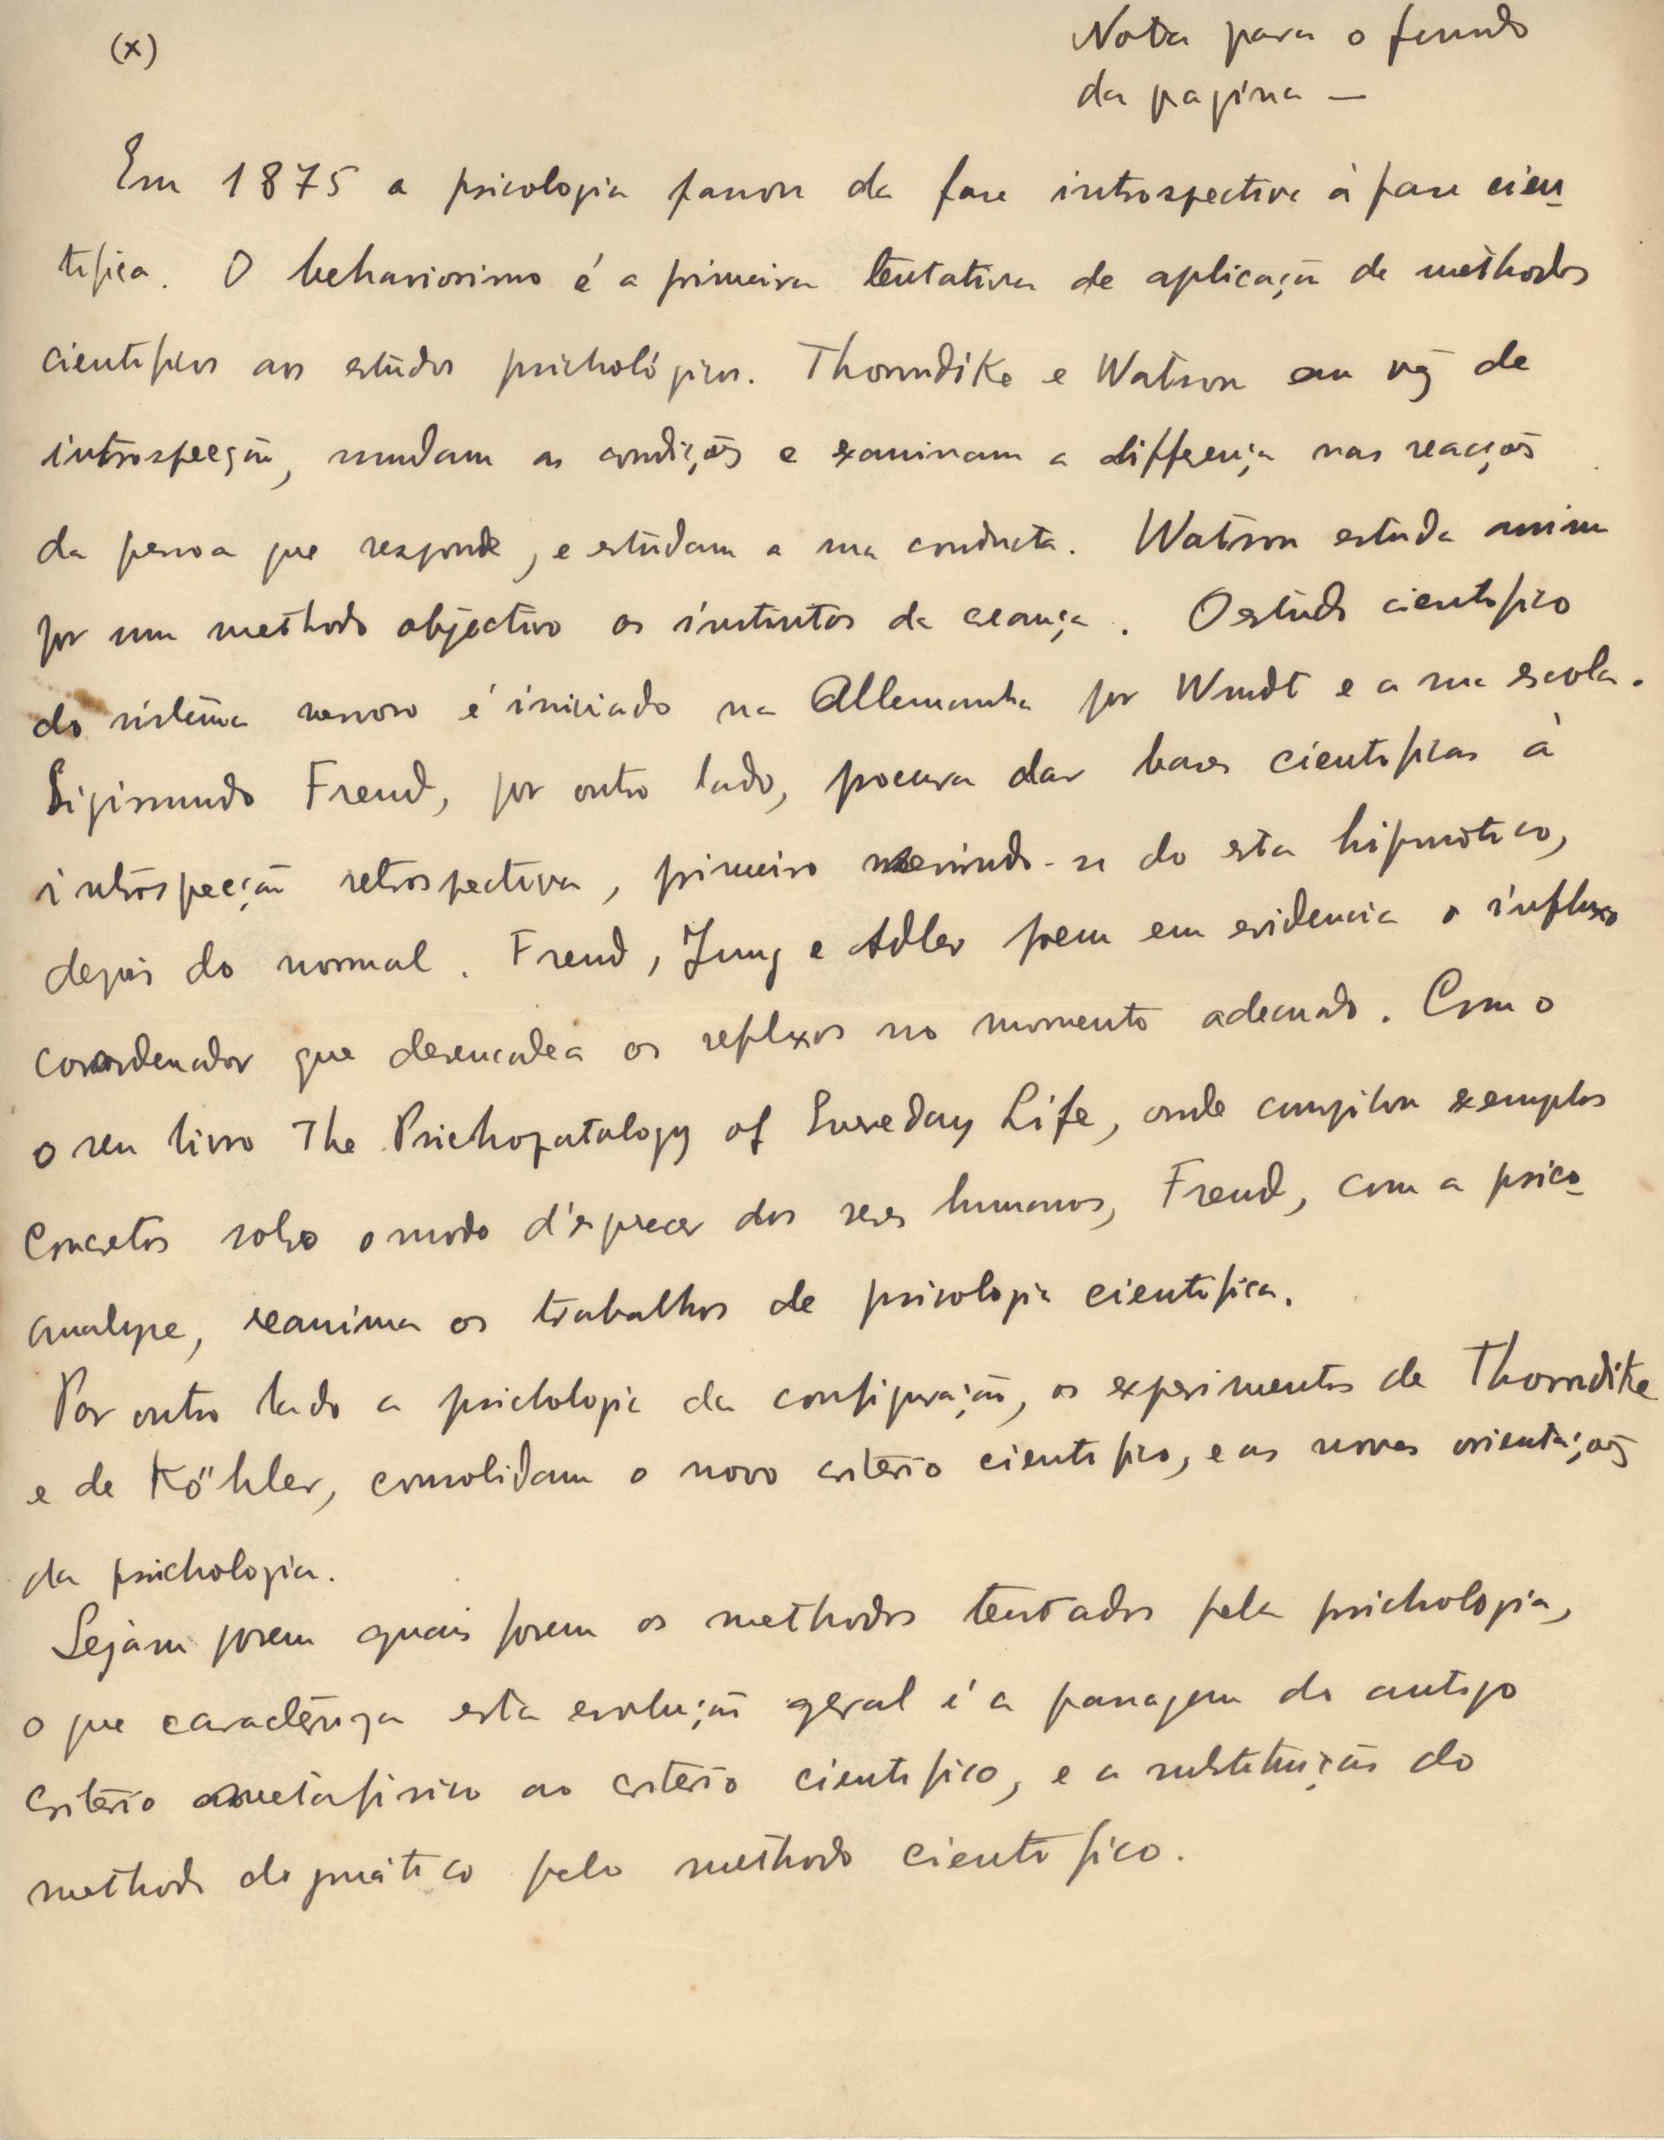 (x)
Nota para o fundo
da pagina —
Em 1875 a psicologia passou da fase introspectiva à fase cien
tifica. O behaviorismo é a primeira tentativa de aplicação de methodos
cientificos aos estudos psichológicos. Thorndike e Watson em vez de
introspecção, mudam as condições e examinam a differença nas reacções
da pessoa que responde, e estudam a sua conducta. Watson estuda assim
por um methodo objectivo os instintos da creança. O estudo cientifico
do sistema nervoso é iniciado na Allemanha por Wundt e a sua escola.
Sigismundo Freud, por outro lado, procura dar bases cientificas à
introspecção retrospectiva, primeiro servindo-se do esta hipnótico,
depois do normal. Freud, Jung e Adler poem em evidencia o influxo
coordenador que desencadea os reflexos no momento adecuado. Com o
o seu livro The Psichopatalogy of Everedary Life, onde compilou exemplos
concretos sobre o modo d'esquecer dos seres humanos, Freud, com a psico
analyse, reanima os trabalhos de psicologia cientifica.
Por outro lado a psichologia da configuração, os experimentos de Thorndike
e de Köhler, consolidam o novo criterio cientifico, e as novas orientações
da psichologia.
Sejam porem quais forem os methodos tentados pela psichologia,
o que caracteriza esta evolução geral é a passagem do antigo
criterio metafisico ao criterio cientifico, e a substituição do
methodo dogmático pelo methodo cientifico.